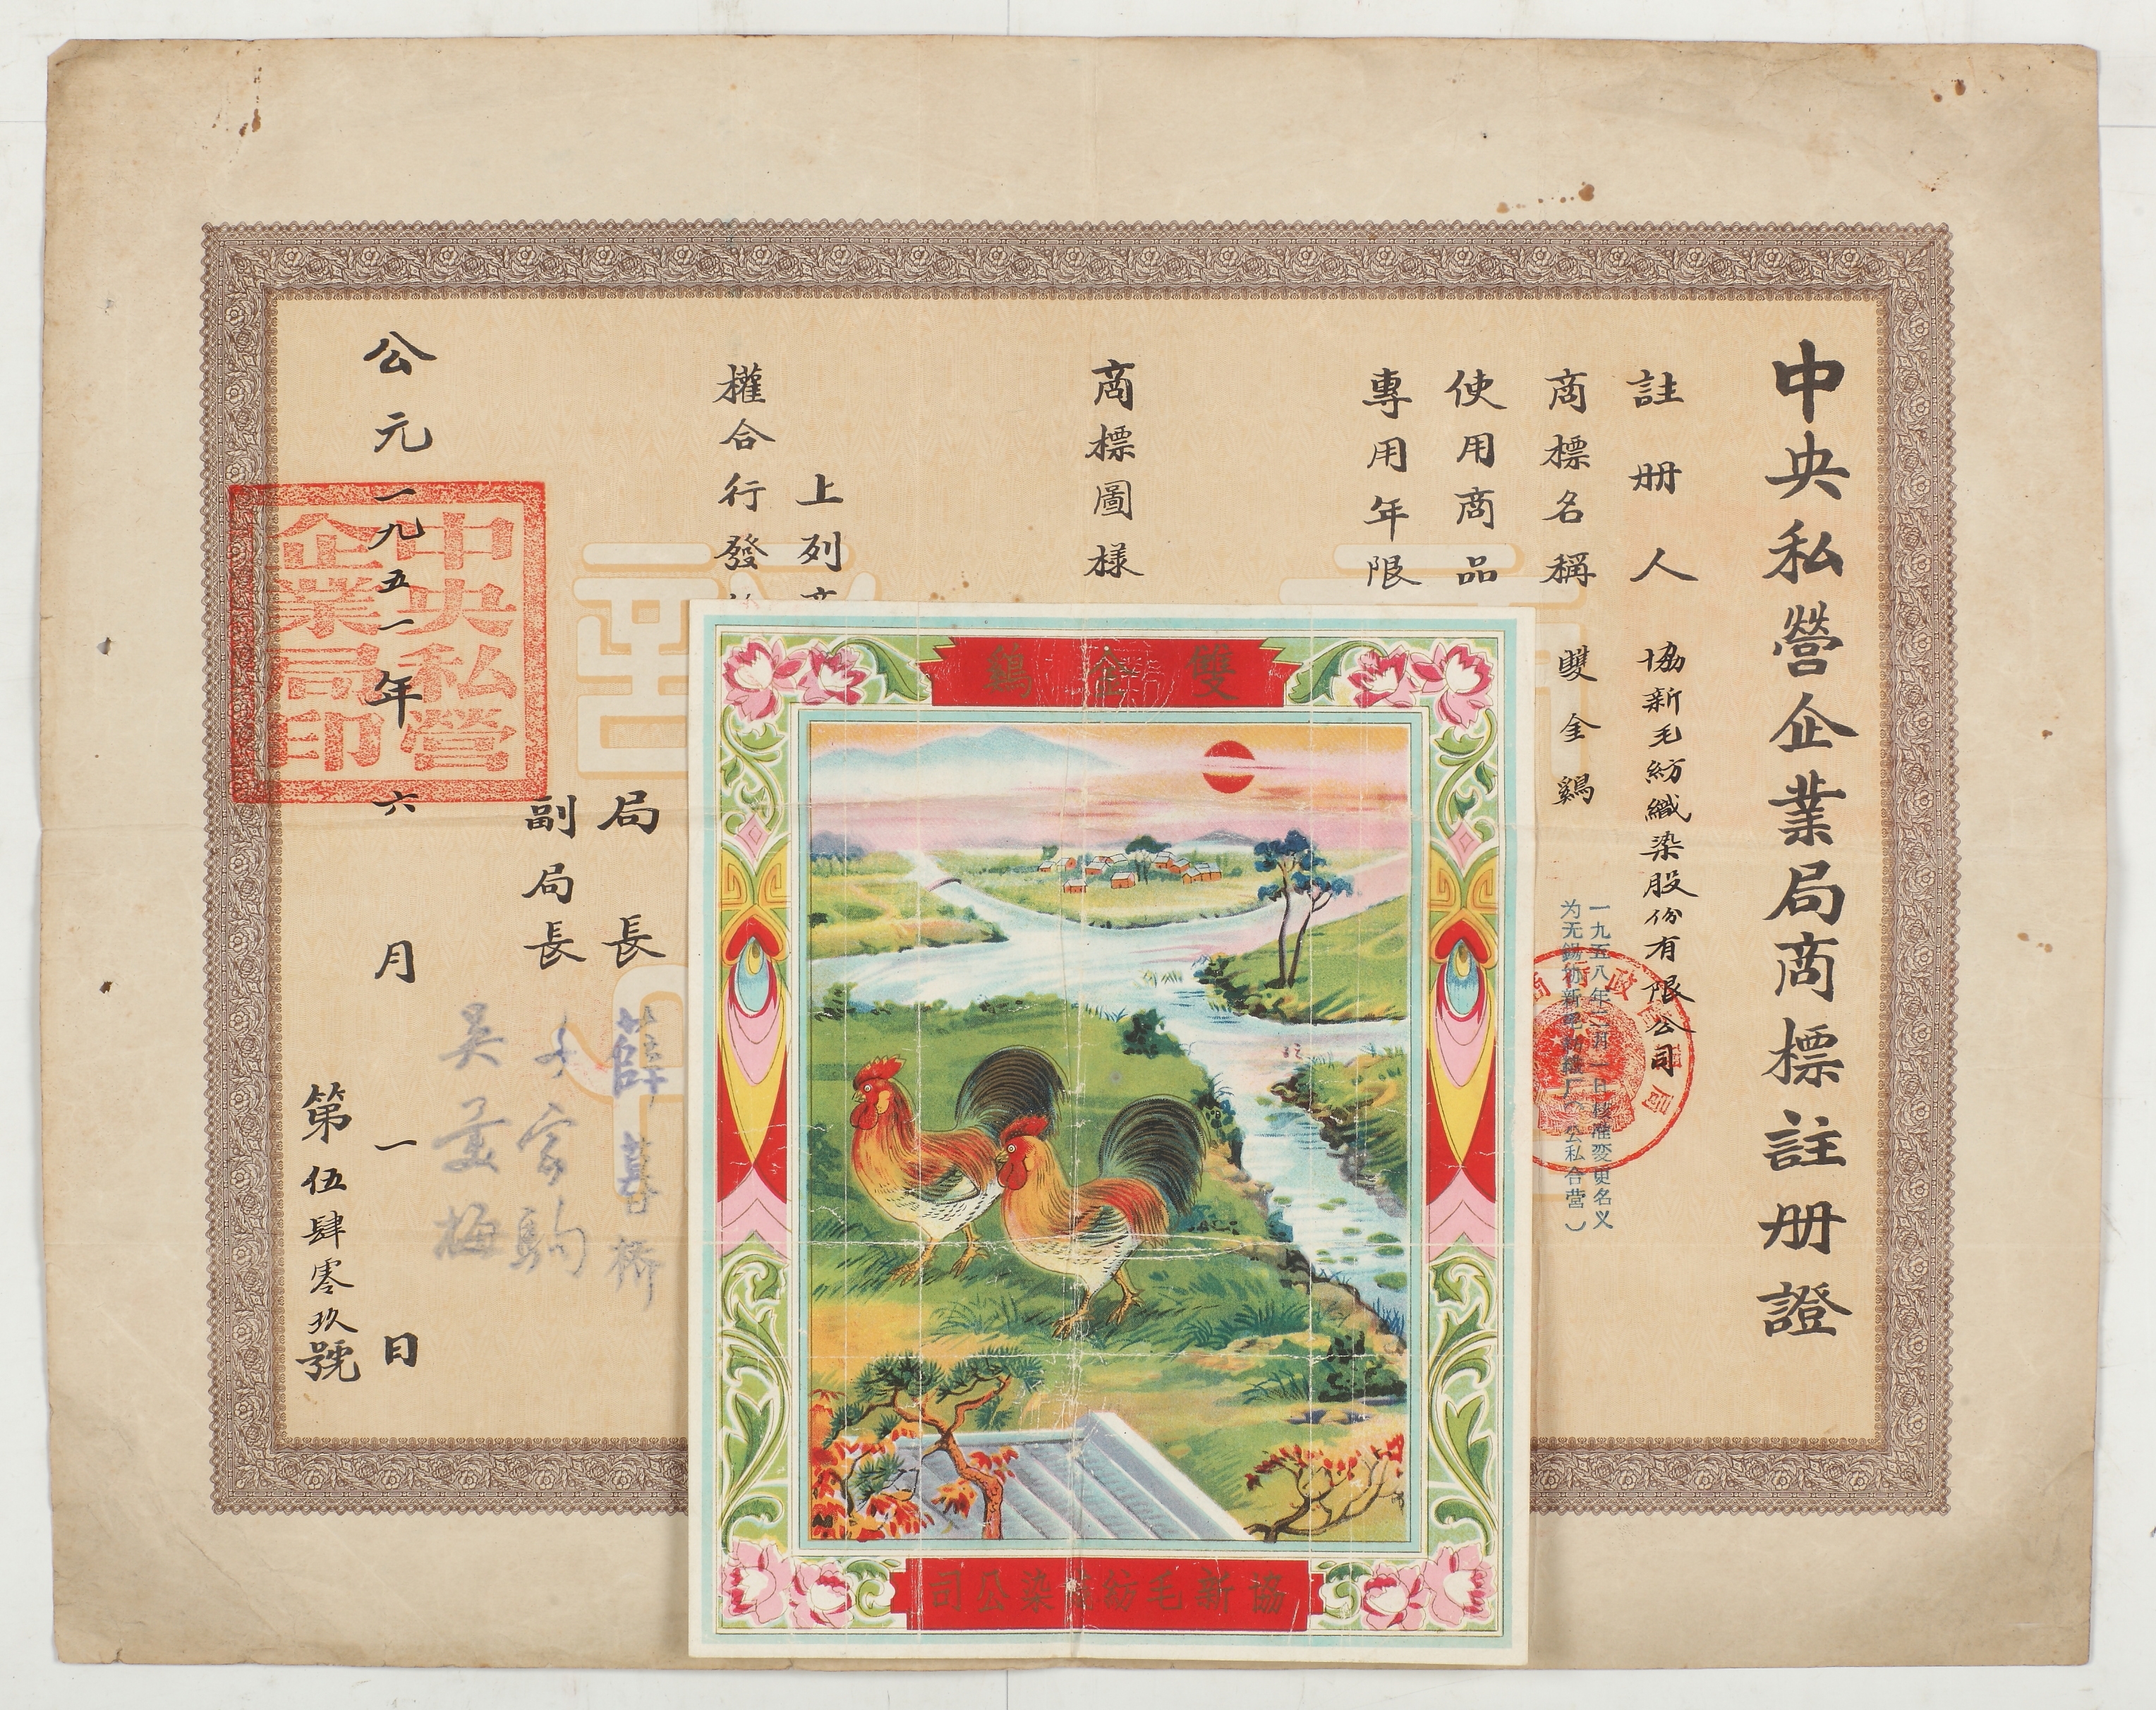 中央私營企業局商標註册證
註册人 協新毛紡織染股份有限公司
商標名稱 雙金鷄
一九五八年二月一日核准变更名义
为无锡协新毛纺织厂（公私合营）
使用商品
專用年限
商標圖樣
雙金鷄
協新毛紡織染公司
上列商
權合行發
局長 薛暮橋
副局長 千家駒
吴羹梅
公元一九五一年六月一日
中央私營
企業局印
第伍肆零玖號